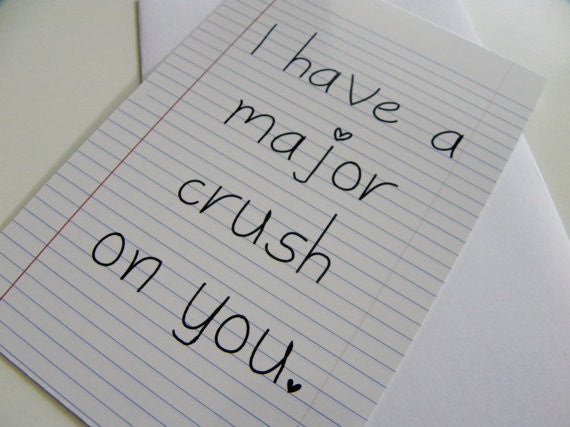 I have a
major
crush
on you.